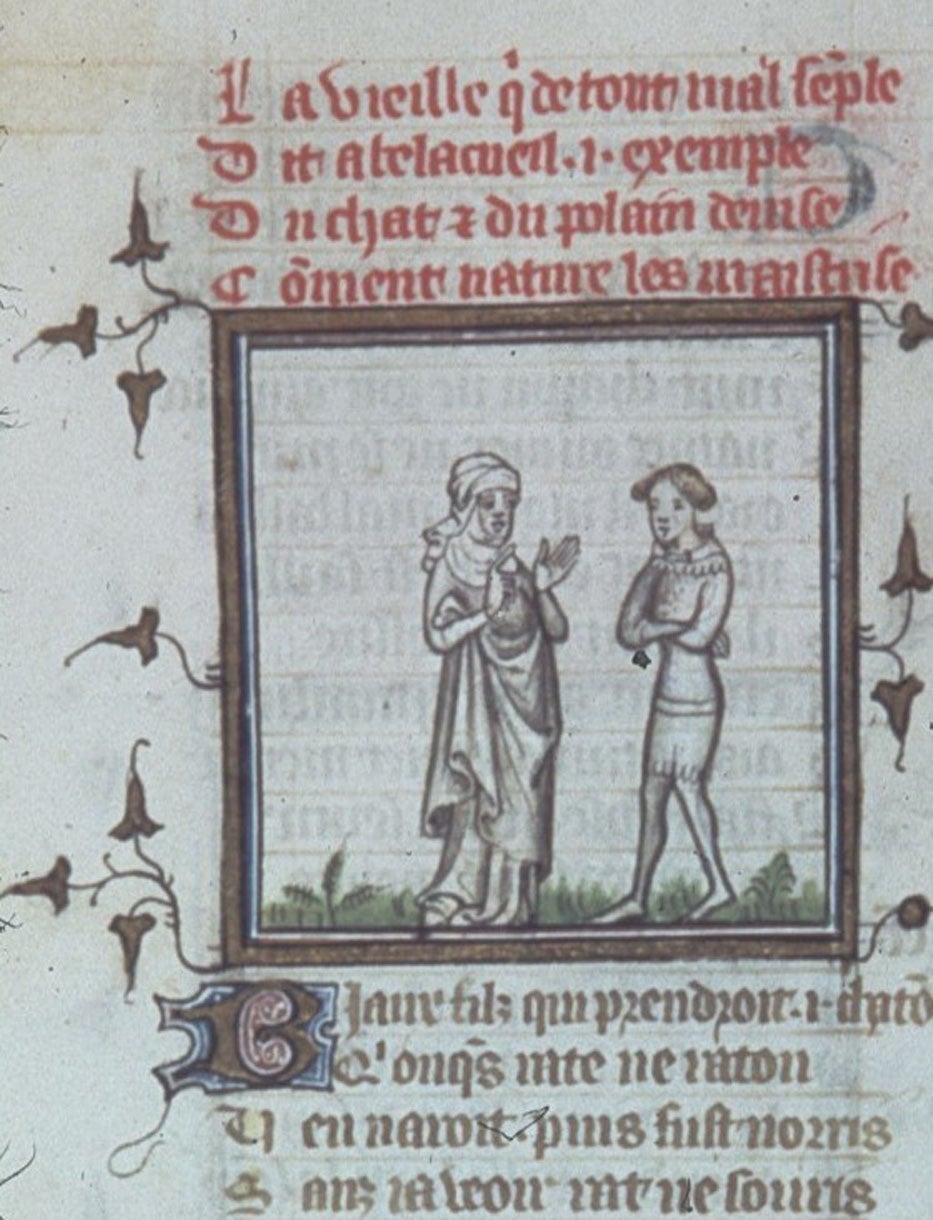 La vieille q̄ de tout mal sēple
Dit a belacueil .i. exemple
Du chat ⁊ du polain deuise
Cōment nature les maistrise
Biaux filz qui prendroit .i. chatō
Q'onqs̄ rate ne raton
Ueu nauroit puis fust norris
Sanz ia veoir rat ne souris